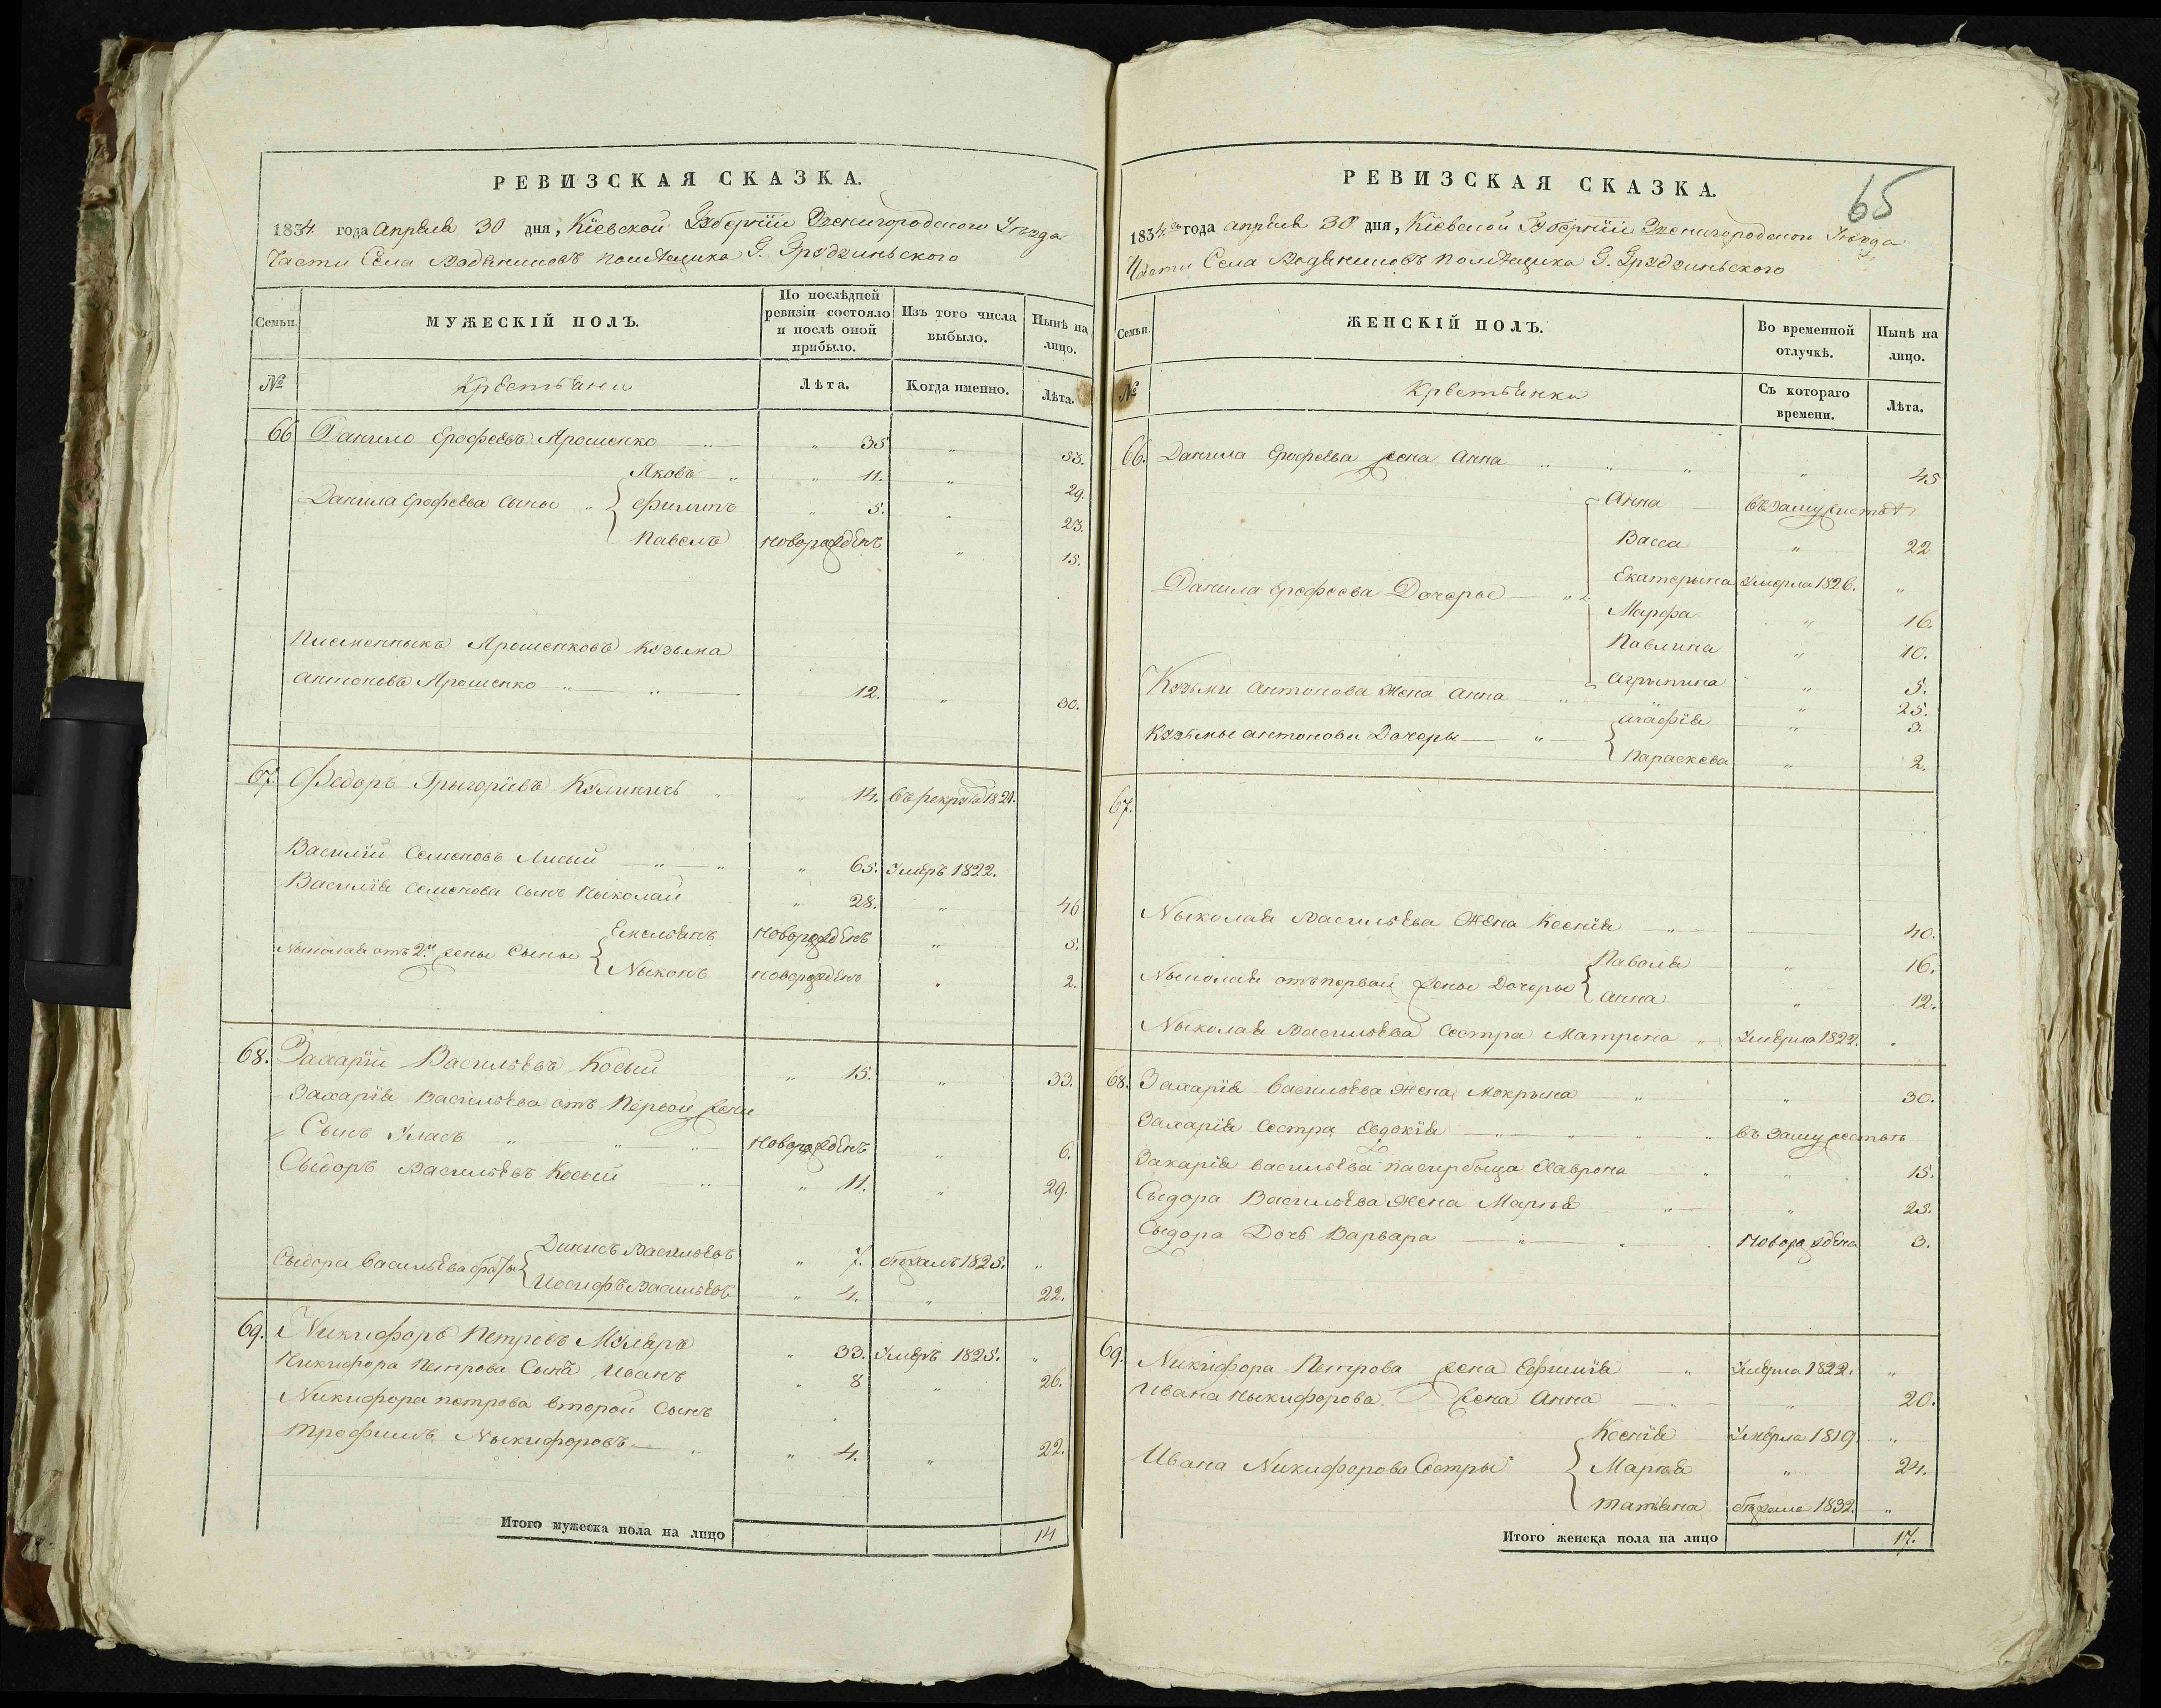 РЕВИЗСКАЯ СКАЗКА.
1834 года Апреля 30 дня, Кіевской Губерніи Звенигородскаго Уезда
Части Села Водяниковъ помещика Г. Грудзиньского
Семьи. МУЖЕСКІЙ ПОЛЪ. По послѣдней ревизіи состояло и послѣ оной прибыло. Изъ того числа выбыло. Нынѣ на лицо.
№ Крестьяни Лѣта. Когда именно. Лѣта.
66 Данило Ерофеевъ Ярошенко " 35 " 53.
Яковъ " 11. " 29.
Данила Ерофеева Сыны Филипъ " 5. " 23.
Павелъ новорожденъ " 15.
Племенныкъ Ярошенковъ Козьма
Антоновъ Ярошенко 12. " 30.
67. Федоръ Грыгоріевъ Калиничъ " 14. въ рекрута 1821.
Василій Семеновъ Лысый " 65. Умеръ 1822.
Василія Семенова сынъ Ныколай " 28. " 46
Емельянъ новорожденъ " 5.
Ныколая отъ 2й жены Сыны
Ныконъ новорожденъ " 2.
68. Захарій Васильевъ Косый " 15. " 33.
Захарія Васильева отъ Первой жены
Сынъ Уласъ новорожденъ " 6.
Сыдоръ Васильевъ Косый " 11. " 29.
Динисъ Васильевъ " 7. бежалъ 1825. "
Сыдора Васильева браты
Иосифъ Васильевъ " 4. " 22.
69. Никифоръ Петровъ Муляръ " 33. Умеръ 1825. "
Никифора Петрова Сынъ Иванъ " 8 " 26.
Никифора петрова второй Сынъ
Трофимъ Ныкифоровъ " 4. " 22.
Итого мужеска пола на лицо 14
РЕВИЗСКАЯ СКАЗКА.
65
1834го года апреля 30 дня, Кіевской Губерніи Звенигородского Уезда
Части Села Водяниковъ помещика Г. Грудзиньского
Семьи. ЖЕНСКІЙ ПОЛЪ. Во временной отлучкѣ. Нынѣ на лицо.
№ Крестьянки Съ котораго времени. Лѣта.
66. Данила Ерофеева жена Анна " 45
Анна въ замужистве
Васса " 22
Екатерына Умерла 1826. "
Данила Ерофеева Дочеры
Марфа " 16.
Павлина " 10.
Агрыпина " 5.
Козьми Антонова Жена Анна " 25.
Агафія " 3.
Козьмы антонови Дочеры
Параскева " 2.
67.
Ныколая Васильева Жена Ксенія 40.
Павола " 16.
Ныколая отъ первой жены Дочеры
Анна " 12.
Ныколая Васильева Сестра Матрона Умерла 1822.
68. Захарія Васильева Жена Мокрына " 30.
Захарія Сестра Евдокія въ замужесть
Захарія васильева пасирбыца Хаврона " 15.
Сыдора Васильева Жена Марья " 25.
Сыдора Дочь Варвара Новорождена 3.
69. Никифора Петрова жена Ефимія Умерла 1822. "
Ивана Ныкифорова жена Анна " 20.
Ксенія Умерла 1819. "
Ивана Никифорова Сестры Марья " 24.
Татьяна бежала 1832. "
Итого женска пола на лицо 17.